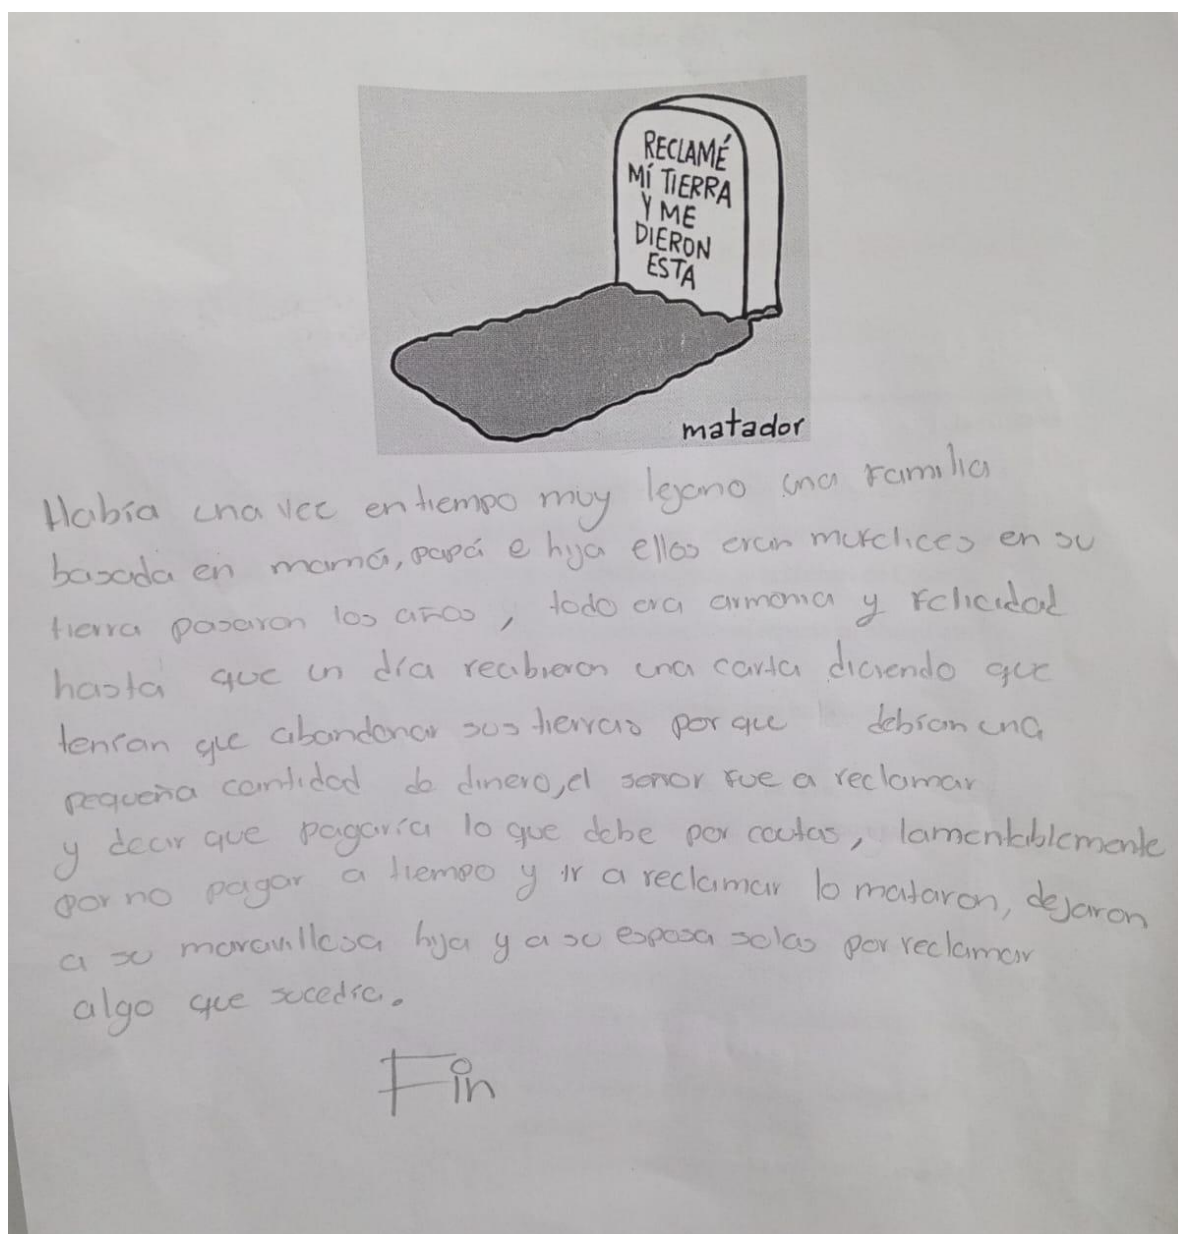 RECLAMÉ
MÍ TIERRA
Y ME
DIERON
ESTA
matador
Había una vez en tiempo muy lejano una familia
basada en mamá, papá e hija ellos eran muy felices en su
tierra pasaron los años, todo era armonía y felicidad
hasta que un día recibieron una carta diciendo que
tenían que abandonar sus tierras por que debían una
pequeña cantidad de dinero, el señor fue a reclamar
y decir que pagaría lo que debe por coutas, lamentablemente
por no pagar a tiempo y ir a reclamar lo mataron, dejaron
a su maravillosa hija y a su esposa solas por reclamar
algo que sucedía.
Fin